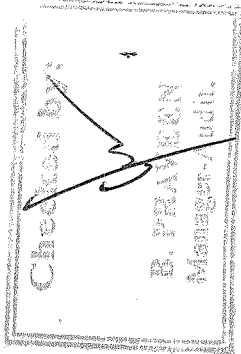 Checked by:
B. PRAVEEN
Manager/Audit.